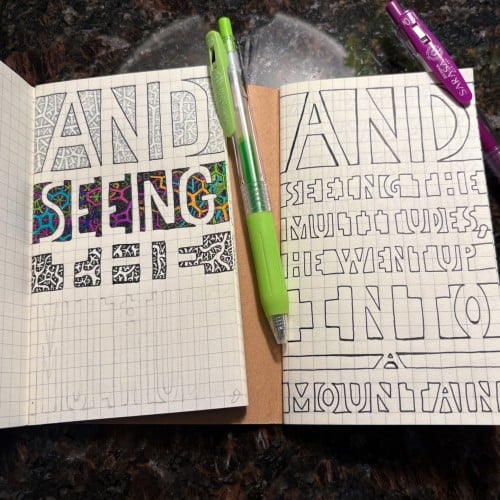 AND
SEEING
AND
SEEING THE
MULTITUDES,
HE WENT UP
INTO
A
MOUNTAIN
SARASA